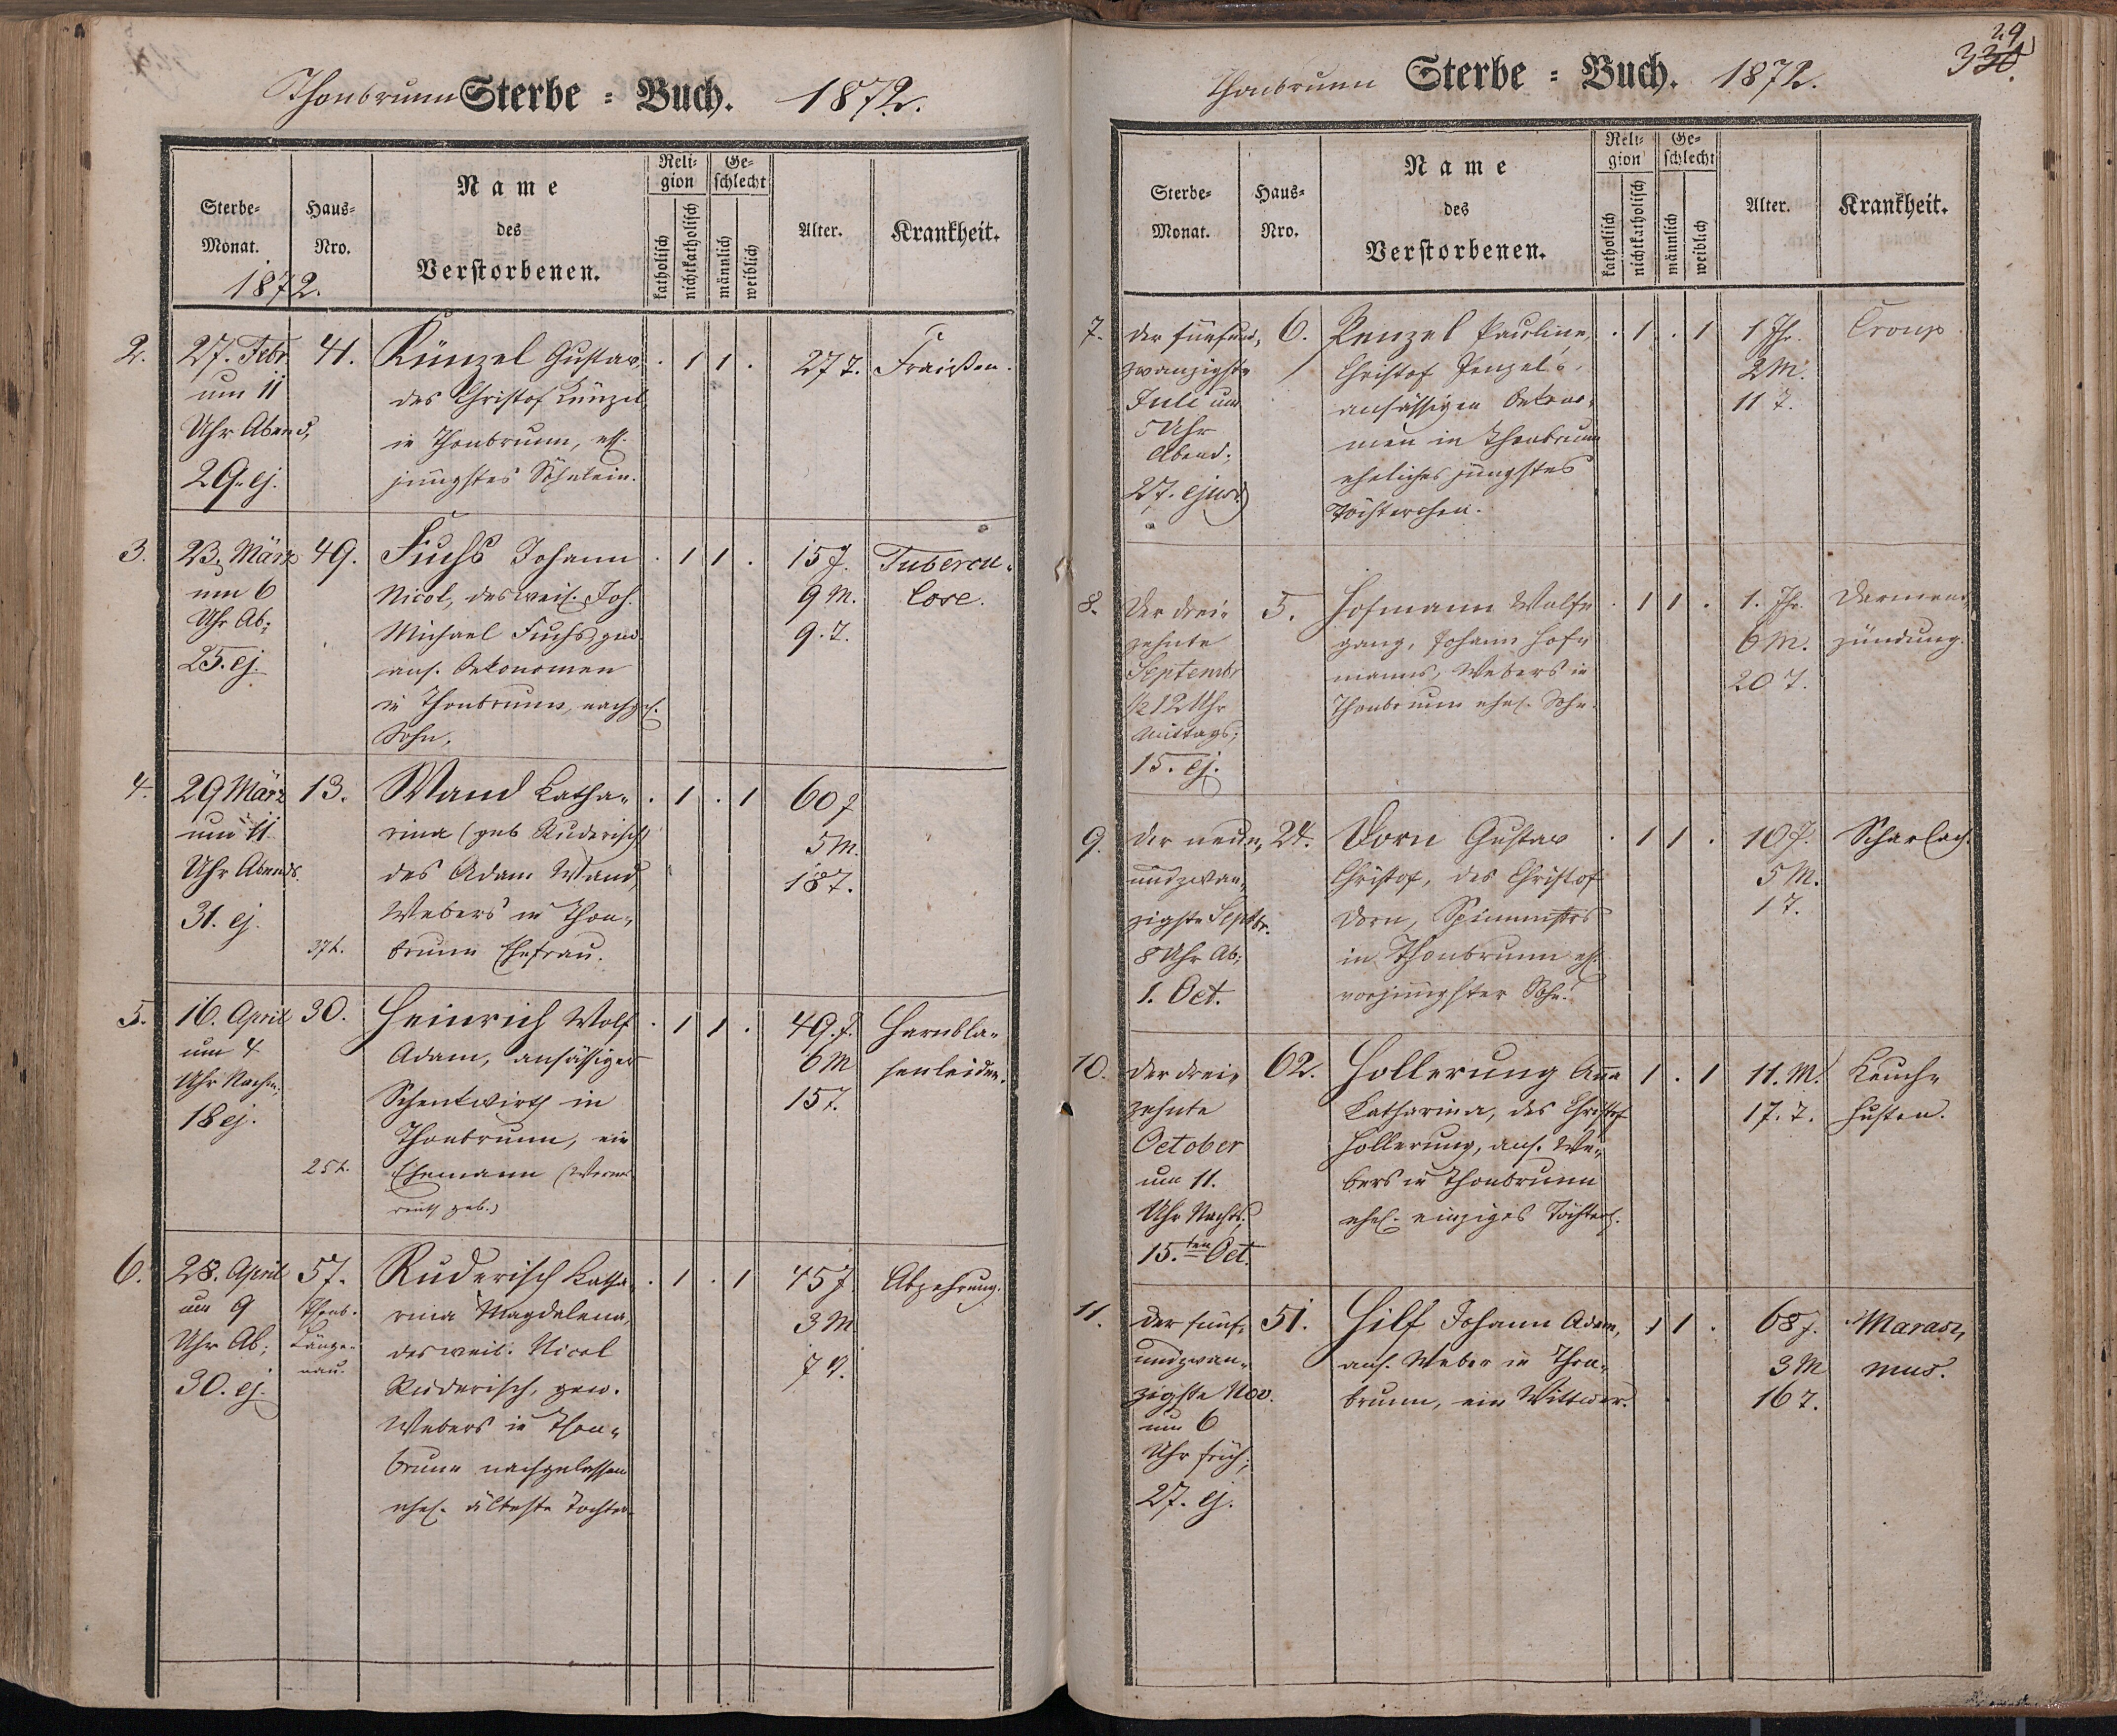 Thonbrunn Sterbe = Buch. 1872.
Sterbe-
Monat.
1872.
Haus-
Nro.
Name
des
Verstorbenen.
Reli-
gion
katholisch
nichtkatholisch
Ge-
schlecht
männlich
weiblich
Alter.
Krankheit.
2.
27. Febr.
um 11
Uhr Abend,
29. ej.
41.
Künzel Gustav,
des Christof Künzel
in Thonbrunn, ehl.
jüngstes Söhnlein.
. 1 1 .
27 T.
Fraißen.
3.
23. März
um 6
Uhr Ab;
25. ej.
49.
Fuchs Johann
Nicol, des weil. Joh.
Michael Fuchs, gew.
ans. Oekonomen
in Thonbrunn, nachgel.
Sohn.
. 1 1 .
15 J.
9 M.
9. T.
Tubercu-
lose.
4.
29 März
um 11
Uhr Abends.
31. ej.
13.
37 h.
Wand Katha-
rina (geb. Ruderisch)
des Adam Wand,
Webers in Thon-
brunn Ehefrau.
. 1 . 1
60 J
5 M.
18 T.
5.
16. April
um 4
Uhr Nachm;
18 ej.
30.
25 h.
Heinrich Wolf
Adam, ansässiger
Schenkwirth in
Thonbrunn, ein
Ehemann (Werners-
reuth geb.)
. 1 1 .
49. J.
6 M
15 T.
Harnbla-
senleiden.
6.
28. April
um 9
Uhr Ab;
30. ej.
57.
Thonb.
Länge-
nau.
Ruderisch Katha-
rina Magdalena,
des weil. Nicol
Ruderisch, gew.
Webers in Thon-
brunn nachgelassene
ehel. älteste Tochter.
. 1 . 1
45 J
3 M
7 T.
Abzehrung.
29
330.
Thonbrunn Sterbe = Buch. 1872.
Sterbe-
Monat.
Haus-
Nro.
Name
des
Verstorbenen.
Reli-
gion
katholisch
nichtkatholisch
Ge-
schlecht
männlich
weiblich
Alter.
Krankheit.
7.
der fünfund-
zwanzigste
Juli um
5 Uhr
Abend;
27. ejusd
6.
Penzel Pauline,
Christof Penzel's,
ansässigen Oekono-
men in Thonbrunn
eheliches jüngstes
Töchterchen.
. 1 . 1
1 Jhr.
2 M.
11 T.
Croup
8.
Der drei-
zehnte
September
1/2 12 Uhr
Mittags;
15. ej.
5.
Hofmann Wolf-
gang, Johann Hof-
manns, Webers in
Thonbrunn ehel. Sohn.
. 1 1 .
1. Jhr.
6 M.
20 T.
Darment-
zündung.
9.
Der neun-
undzwan-
zigste Septbr.
8 Uhr Ab;
1. Oct.
24.
Dorn Gustav
Christof, des Christof
Dorn,
in Thonbrunn ehl.
vorjüngster Sohn.
. 1 1 .
10 J.
5 M.
1 T.
Scharlach.
10.
Der drei-
zehnte
October
um 11.
Uhr Nachts;
15. ten Oct.
62.
Hollerung Anna
Katharina, des Christof
Hollerung, ans. We-
bers in Thonbrunn
ehel. einziges Töchterl.
1 . 1
11. M.
17. T.
Keuch-
husten.
11.
Der fünf-
undzwan-
zigste Nov.
um 6
Uhr früh;
27. ej.
51.
Hilf Johann Adam,
ans. Weber in Thon-
brunn, ein Wittwer.
. 1 1 .
68 J.
3 M
16 T.
Maras-
mus.